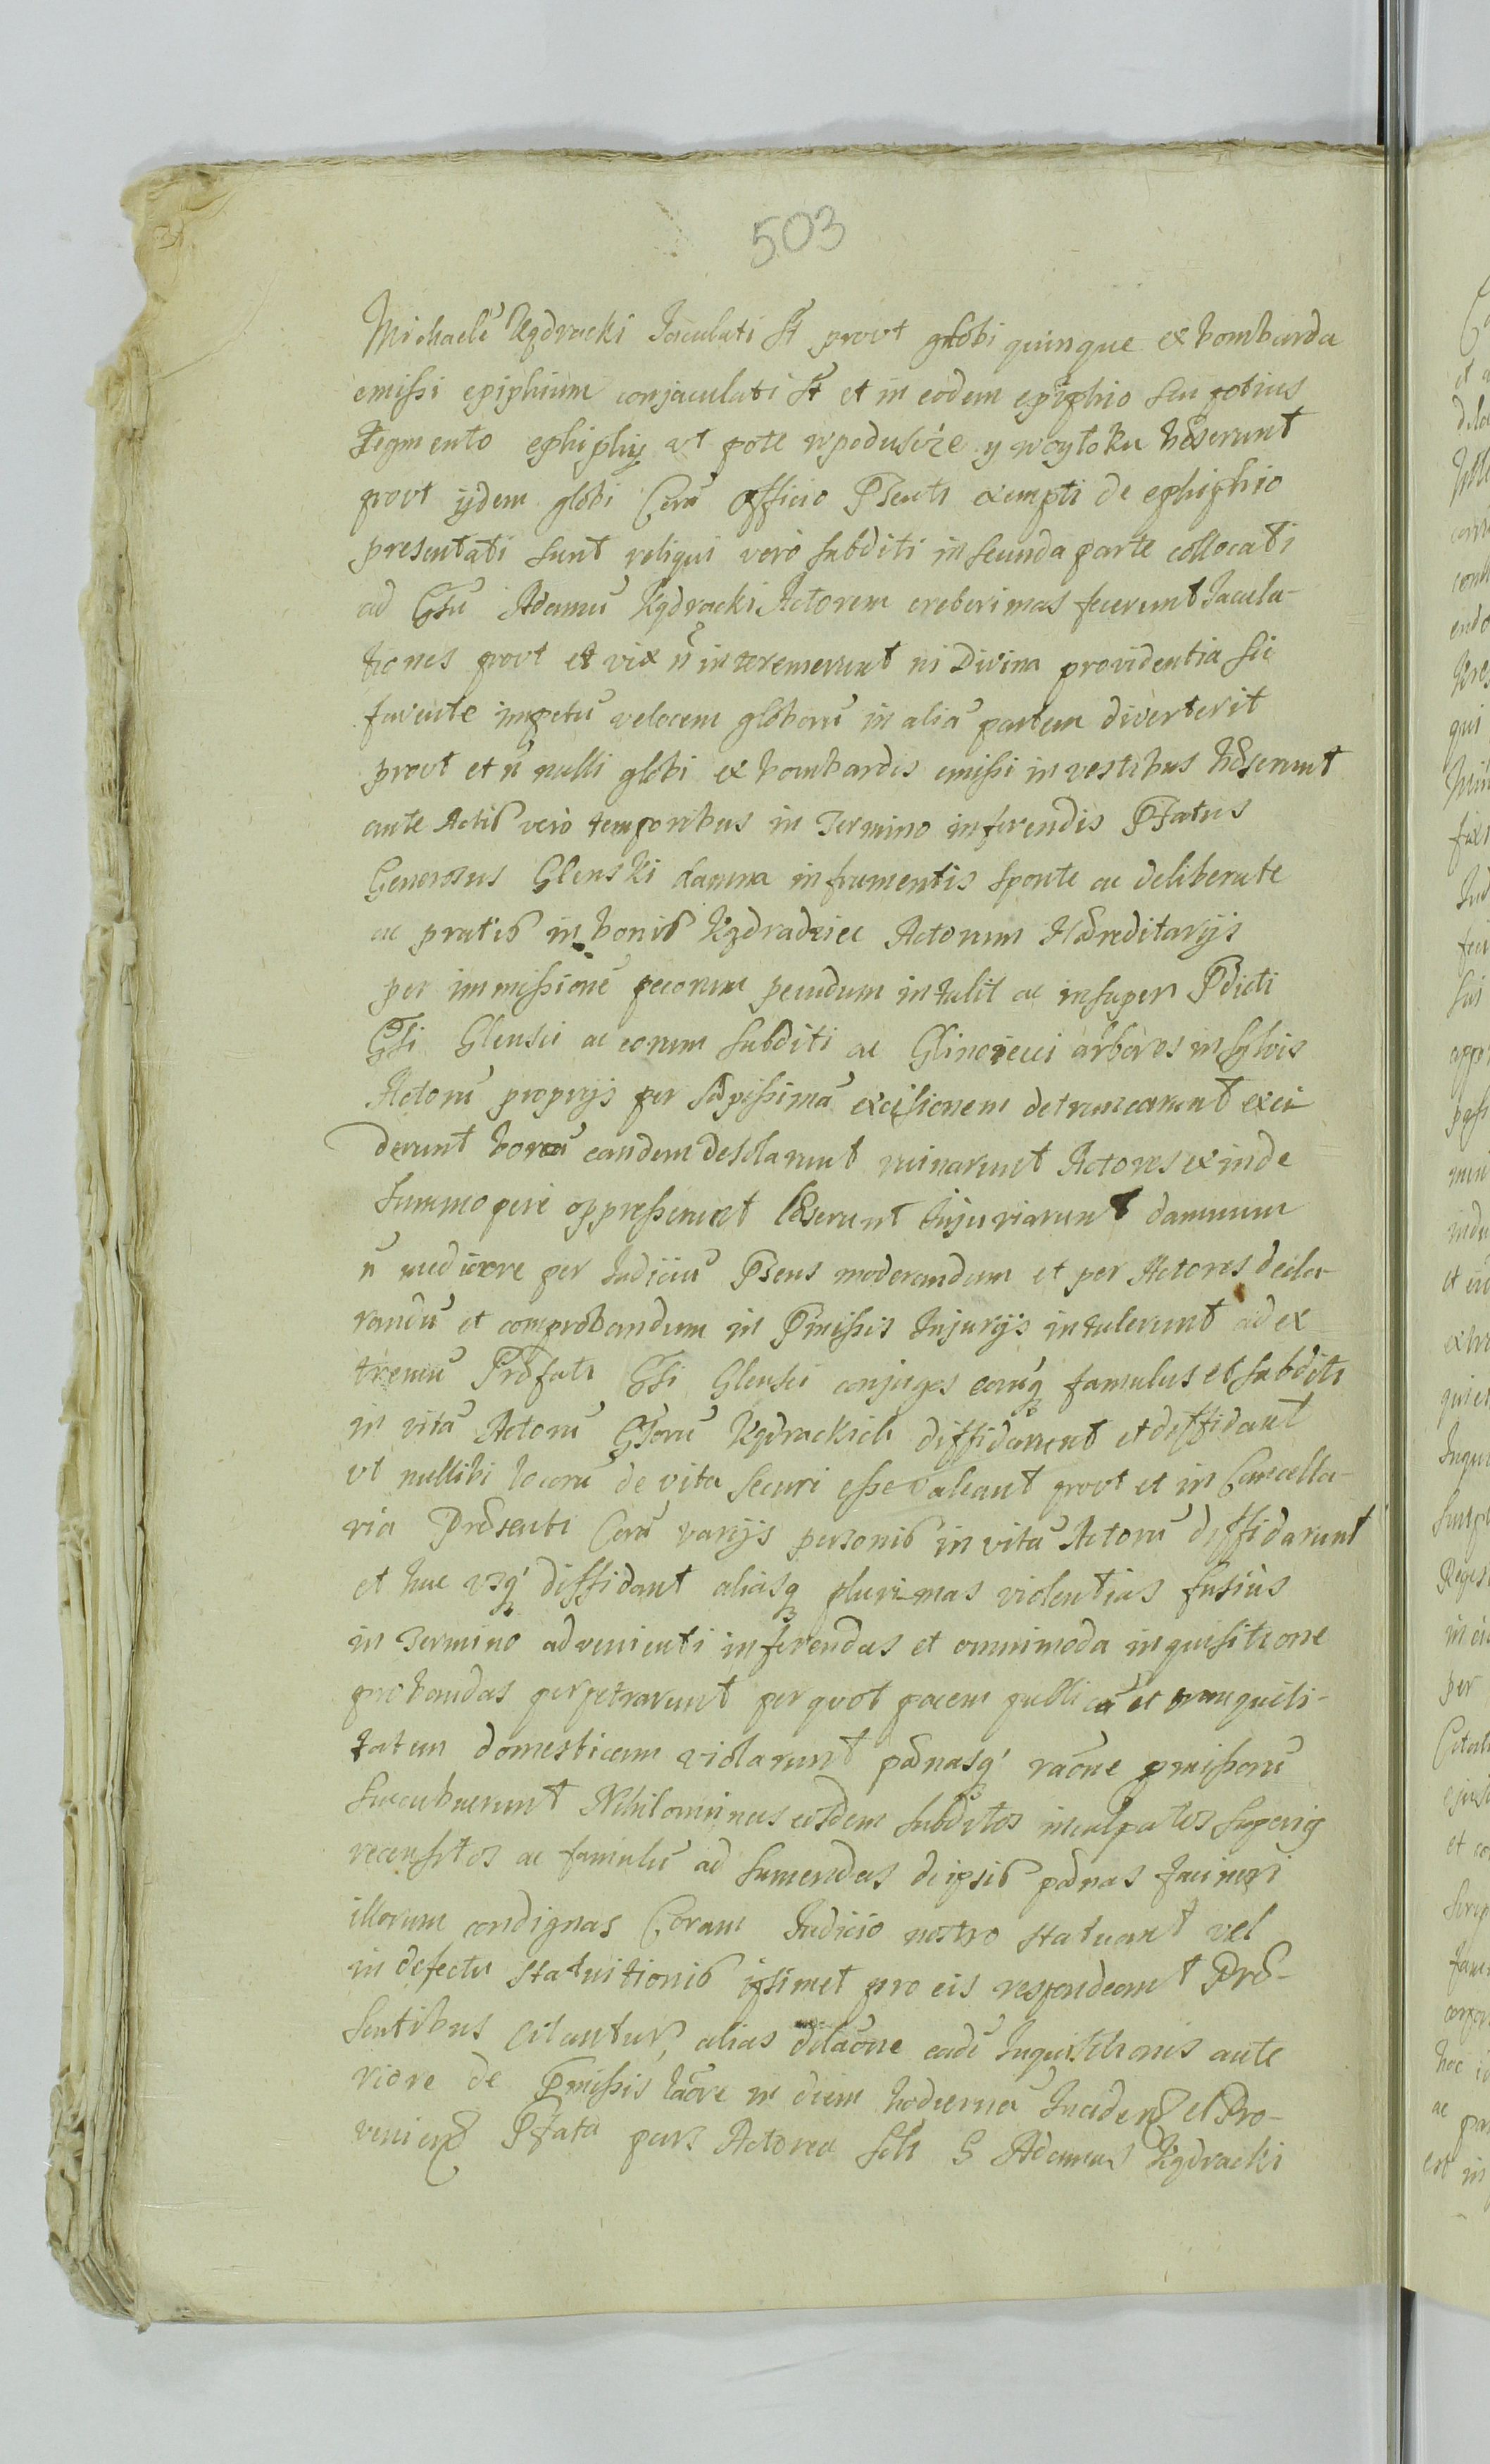 503
Michaelē Kędracki Jaculati st̄ provt globi quinque ex bombarda
emissi epiphium conjaculati st̄ et in eodem epiphio seu potius
tegmento ephiphij vt pote w poduszcze y woyłoku hæserunt
provt ijdem globi Corā Officio Pṡenti exempti de ephiphio
presentati sunt reliqui vero subditi in secunda parte collocati
ad Gsū Adamū Kędracki Actorem creberimas fecerunt Jacula-
tiones provt et vix n̄ interemerunt ni Divina providentia sic
favente impetū velocem globorū in aliā partem diverterit
provt et n̄ nulli globi ex bombardis emissi in vestibus hæserunt
ante Actis vero temporibus in Termino inferendis Pfatus
Generosus Glinski damna in frumentis sponte ac deliberate
ac pratis in bonis Kędradziec Actorum Hæreditarijs
per immissionē pecorum pecudum intulit ac insuper Pdicti
Gsi Glensci ac eorum subditi ac Glinoiecci arbores in sylvis
Actorū proprijs per sæpissimā excisionem detruncarunt exci-
derunt borrā eandem desolarunt ruinarunt Actores exinde
summopere oppresserunt læserunt Injuriarunt damnum
n̄ mediocre per Judiciū Psens moderandum et per Actores decla-
randū et comprobandum in Pmissis Injurijs intulerunt ad ex
tremū Præfati Gsi Glensci conjuges eorūq famulus et subditi
in vitā Actorū Gsorū Kędrackich diffidarunt et diffidant
vt nullibi locorū de vita securi esse valeant provt et in Cancella-
ria Præsenti Corā varijs personis in vitā Actorū diffidarunt
et huc vsq' diffidant aliasq plurimas violentias fusius
in Termino advenienti inferendas et omnimoda inquisitione
probandas perpetrarunt per quot pacem publicā et tranquili-
tatem domesticam violarunt pænasq' raōne pmissorū
succubuerunt Nihilominus eosdem subditos inculpatos superiq
recensitos ac famulū ad sumendas de ipsis pænas facinori
illorum condignas Coram Judicio nostro statuant vel
in defectu statuitionis ipsimet pro eis respondeant Præ-
sentibus citantur, alias dilaōne eadē Inquisitionis ante
riore de Pmissis laōre in diem hodiernā Incidens et Pro-
veniens Pfata pars Actorea scīt G Adamus Kędracki